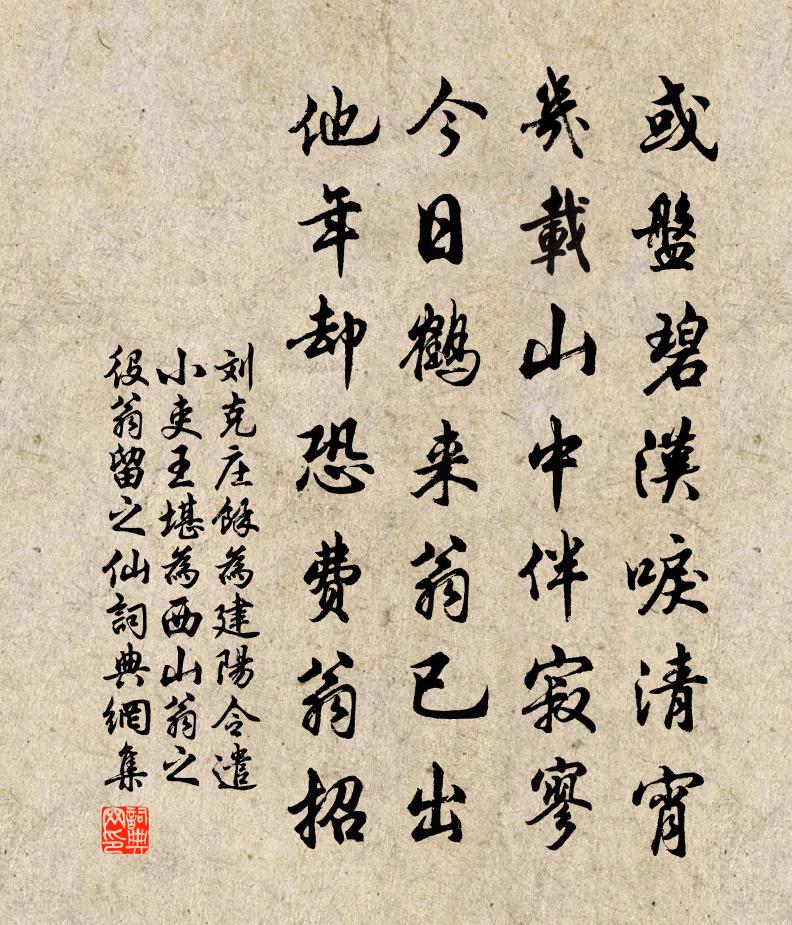 或盤碧漢唳清宵
幾載山中伴寂寥
今日鶴来翁已出
他年却恐費翁招
刘克庄餘為建陽令遣
小吏王堪為西山翁之
役翁留之仙詞典網集
詞典网印